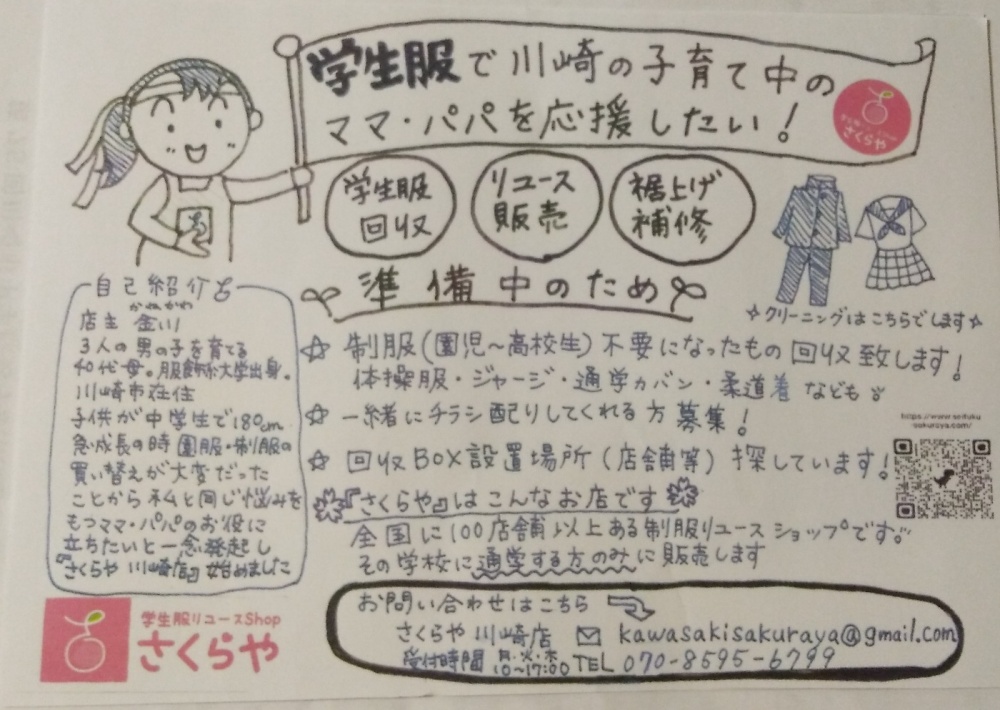 学生服で川崎の子育て中の
ママ・パパを応援したい!
学生服リユースShop
さくらや
学生服
回収
リユース
販売
裾上げ
補修
準備中のため
クリーニングはこちらでします
自己紹介
かねかわ
店主 金川
3人の男の子を育てる
40代母。服飾系大学出身。
川崎市在住
子供が中学生で180cm
急成長の時 園服・制服の
買い替えが大変だった
ことから私と同じ悩みを
もつママ・パパのお役に
立ちたいと一念発起し
『さくらや 川崎店』始めました
☆ 制服(園児~高校生)不要になったもの 回収致します!
体操服・ジャージ・通学カバン・柔道着 なども
☆ 一緒にチラシ配りしてくれる方 募集!
☆ 回収BOX設置場所(店舗等)探しています!
https://www.seifuku
-sakuraya.com/
『さくらや』はこんなお店です
全国に100店舗以上ある制服リユースショップです。
その学校に通学する方のみに販売します
学生服リユースShop
さくらや
お問い合わせはこちら
さくらや 川崎店 kawasakisakuraya@gmail.com
受付時間 月・火・木 10~17:00 TEL 070-8595-6799